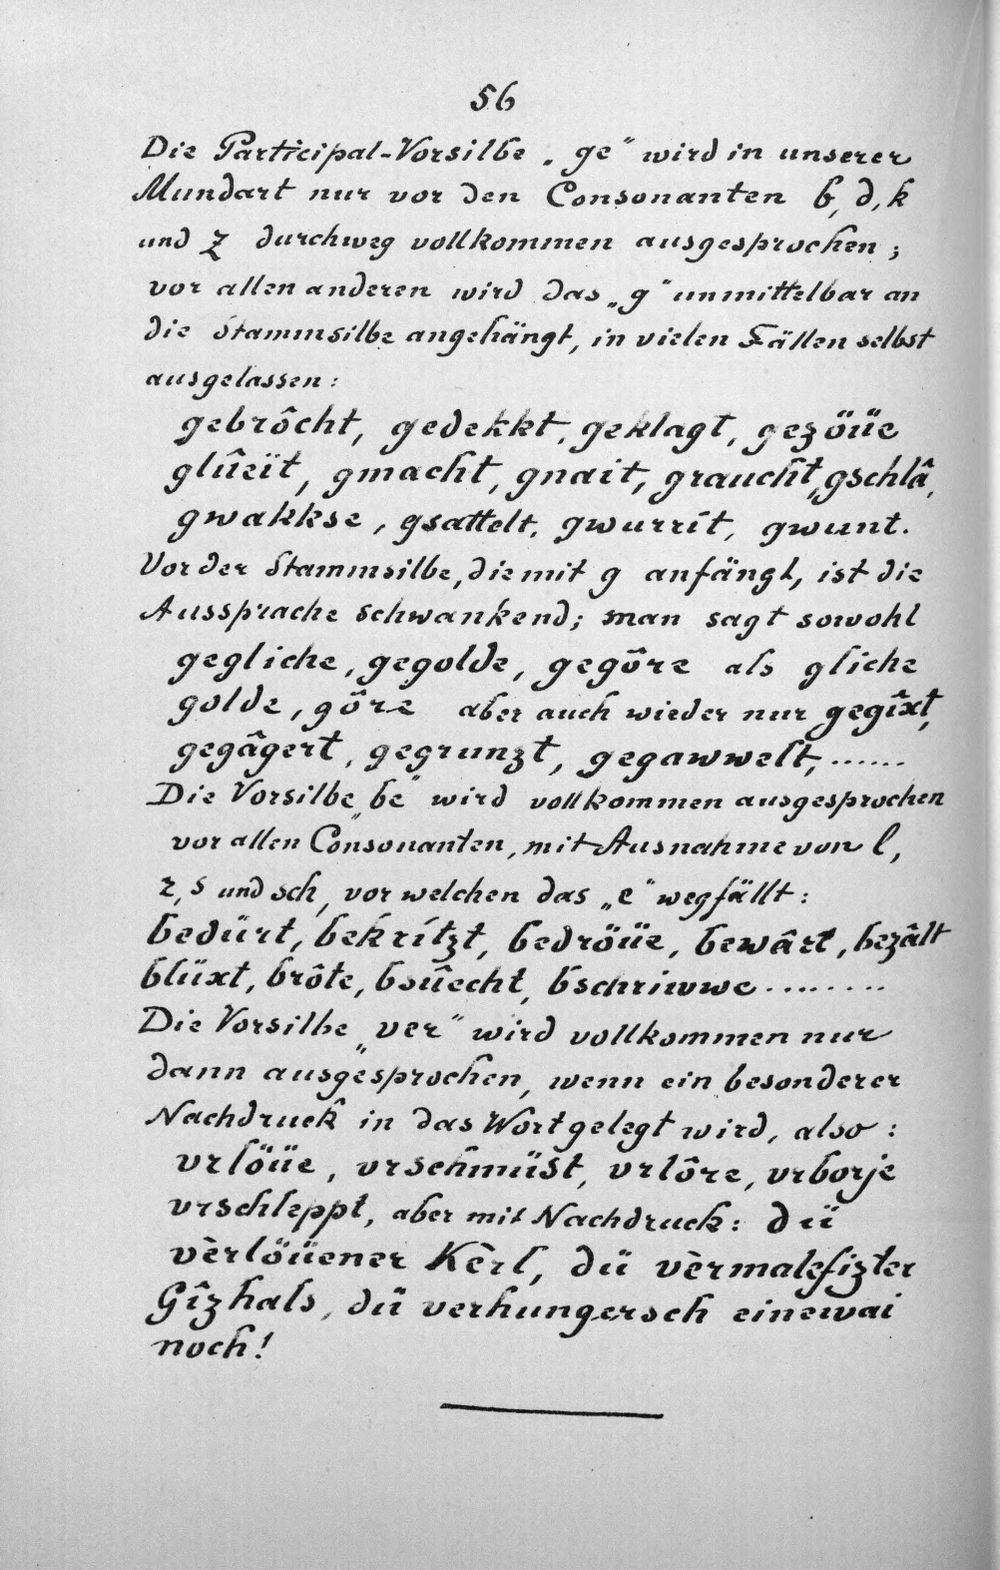 56
Die Participal-Vorsilbe „ge" wird in unserer
Mundart nur vor den Consonanten b, d, k
und z durchweg vollkommen ausgesprochen;
vor allen anderen wird das „g" unmittelbar an
die Stammsilbe angehängt, in vielen Fällen selbst
ausgelassen:
gebrôcht, gedekkt, geklagt, gezöüe
glûeït, gmacht, gnait, graucht, gschlâ,
gwakkse, gsattelt, gwurrit, gwunt.
Vor der Stammsilbe, die mit g anfängt, ist die
Aussprache schwankend; man sagt sowohl
gegliche, gegolde, gegôre als gliche
golde, gôre aber auch wieder nur gegîxt,
gegâgert, gegrunzt, gegawwelt, ......
Die Vorsilbe „be" wird vollkommen ausgesprochen
vor allen Consonanten, mit Ausnahme von l,
r, s und sch, vor welchen das „e" wegfällt:
bedürt, bekrítzt, bedröüe, bewârt, bezâlt
blüxt, brôte, bsûecht, bschriwwe ........
Die Vorsilbe „ver" wird vollkommen nur
dann ausgesprochen, wenn ein besonderer
Nachdruck in das Wort gelegt wird, also:
vrlöüe, vrschmüst, vrlôre, vrborje
vrschleppt, aber mit Nachdruck: dü
vèrlöüener Kèrl, dü vèrmalefizter
Gîzhals, dü verhungersch einewai
noch!